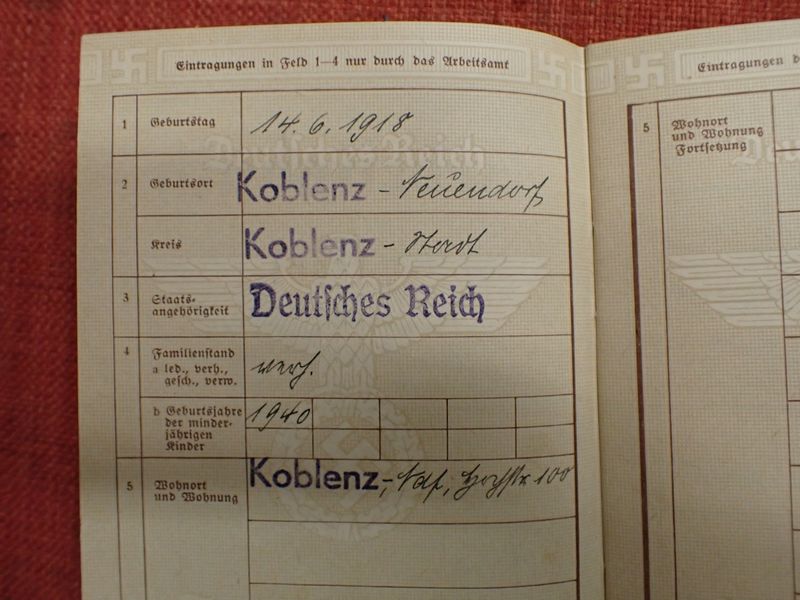 Eintragungen in Feld 1–4 nur durch das Arbeitsamt
1 Geburtstag 14.6.1918
Deutsches Reich
2 Geburtsort Koblenz - Neuendorf
Kreis Koblenz - Stadt
3 Staats-
angehörigkeit Deutsches Reich
4 Familienstand
a led., verh.,
gesch., verw. verh.
b Geburtsjahre 1940
der minder-
jährigen
Kinder
5 Wohnort
und Wohnung Koblenz-, Ndf, Hochstr. 100
Eintragungen d
5 Wohnort
und Wohnung
Fortsetzung